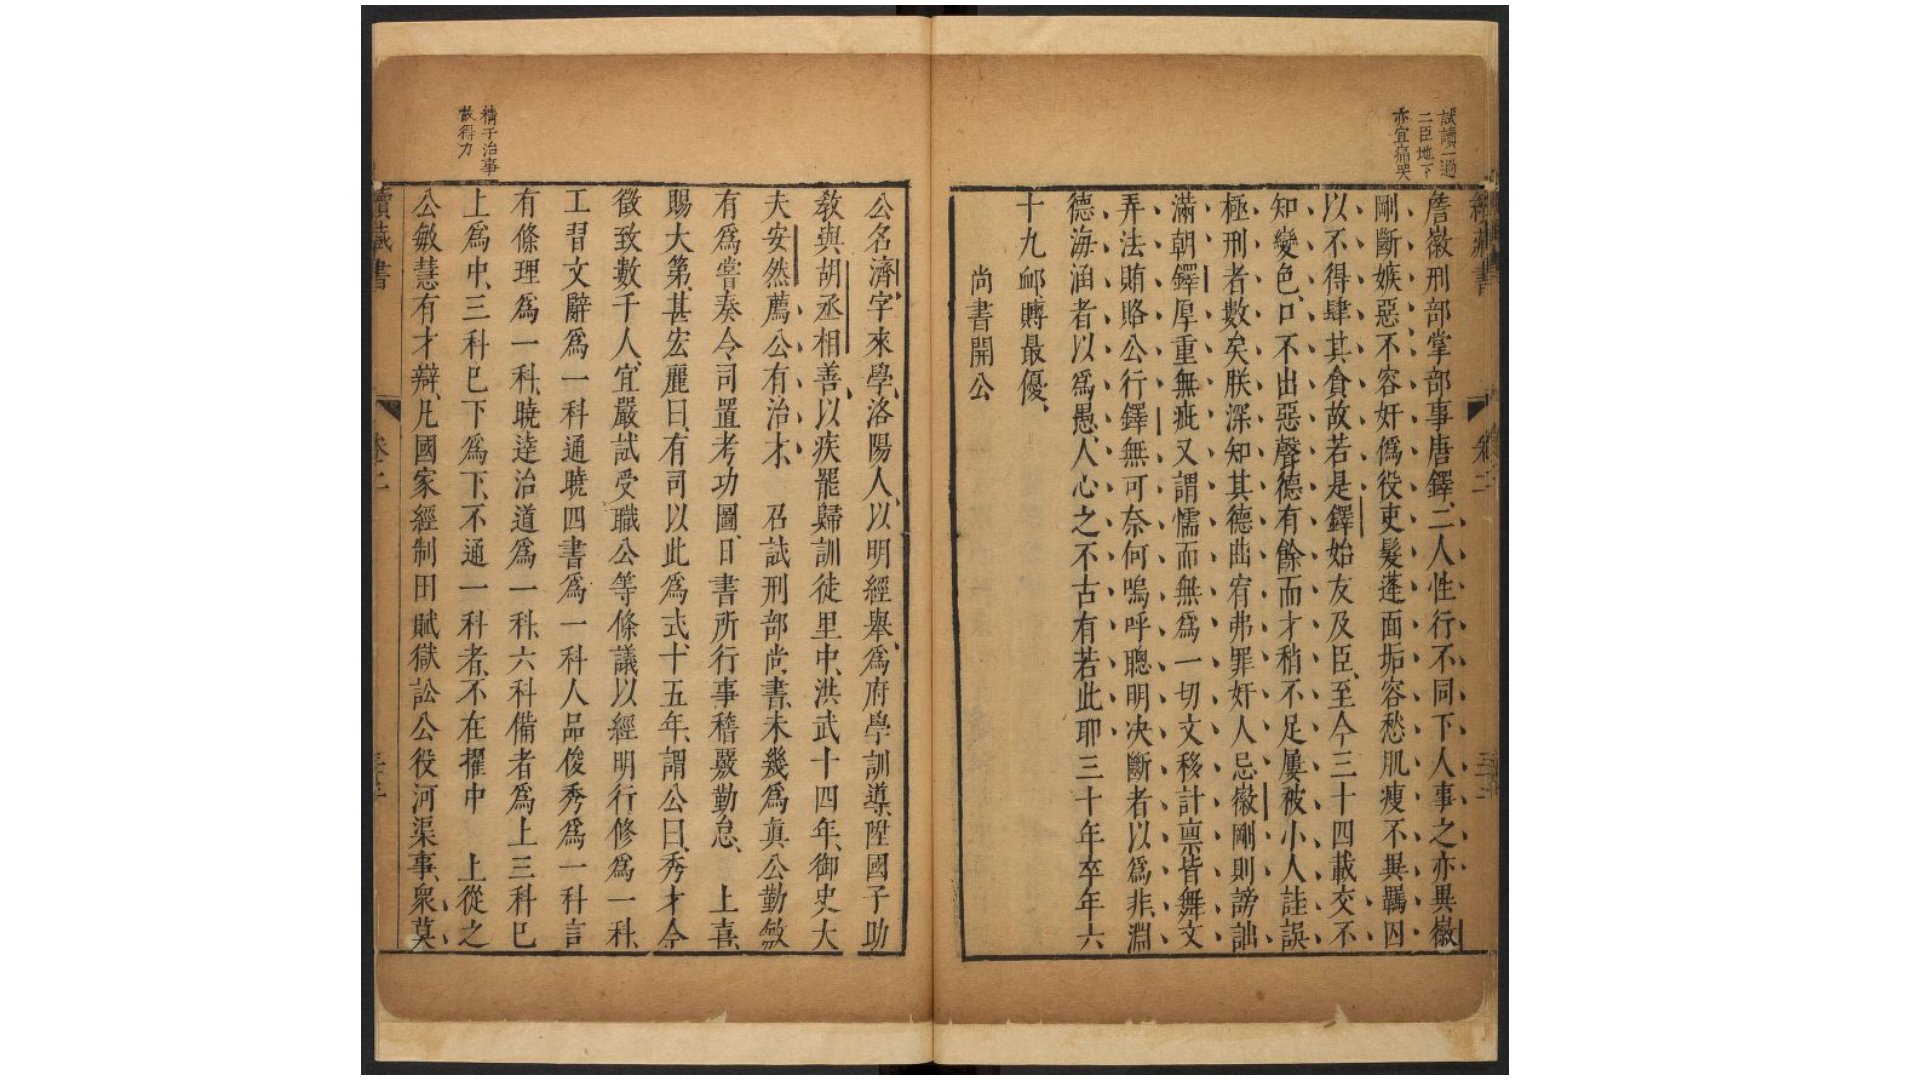 試讀一過
二臣地下
亦宜痛哭
續藏書
卷二
詹徽刑部掌部事唐鐸二人性行不同下人事之亦異徽
剛斷嫉惡不容奸僞役吏髮蓬面垢容愁肌瘦不異羈囚
以不得肆其貪故若是鐸始友及臣至今三十四載交不
知變色口不出惡聲德有餘而才稍不足屢被小人詿誤
極刑者數矣朕深知其德曲宥弗罪奸人忌徽剛則謗訕
滿朝鐸厚重無疵又謂懦而無爲一切文移計禀皆舞文
弄法賄賂公行鐸無可奈何嗚呼聰明决斷者以爲非淵
德海涵者以爲愚人心之不古有若此耶三十年卒年六
十九卹賻最優
尚書開公
公名濟字來學洛陽人以明經舉爲府學訓導陞國子助
敎與胡丞相善以疾罷歸訓徒里中洪武十四年御史大
夫安然薦公有治才 召試刑部尚書未幾爲眞公勤敏
有爲嘗奏令司置考功圖日書所行事稽嚴勤怠 上喜
賜大第甚宏麗曰有司以此爲式十五年謂公曰秀才今
徵致數千人宜嚴試受職公等條議以經明行修爲一科
工習文辭爲一科通曉四書爲一科人品俊秀爲一科言
有條理爲一科曉達治道爲一科六科備者爲上三科巳
上爲中三科巳下爲下不通一科者不在擢中 上從之
公敏慧有才辯凡國家經制田賦獄訟公役河渠事衆莫
精于治事
故得力
續藏書
卷二